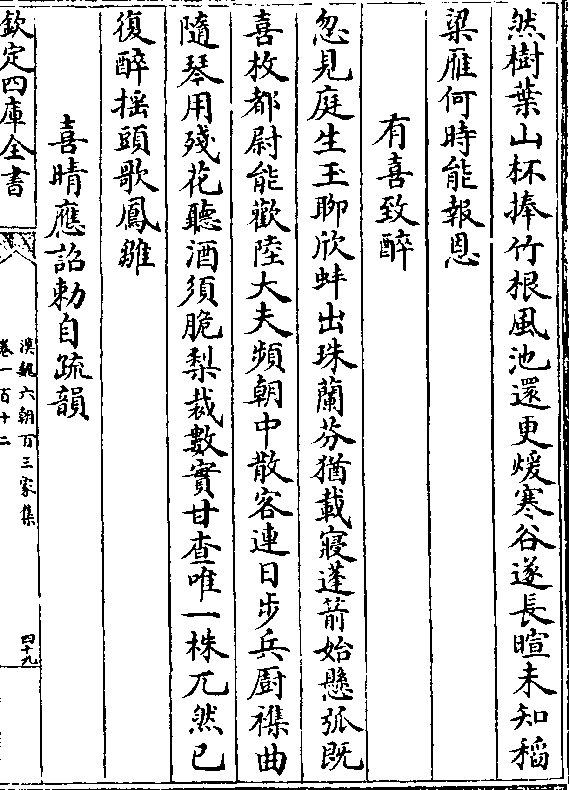 然樹葉山杯捧竹根風池還更煖寒谷遂長暄未知稻
梁雁何時能報恩
有喜致醉
忽見庭生玉聊欣蚌出珠蘭芬猶載寢蓬箭始懸弧既
喜枚都尉能歡陸大夫頻朝中散客連日步兵厨襍曲
隨琴用殘花聽酒須脆梨裁數實甘查唯一株兀然已
復醉摇頭歌鳳雛
喜晴應詔勅自疏韻
欽定四庫全書
漢魏六朝百三家集
卷一百十二
四十九